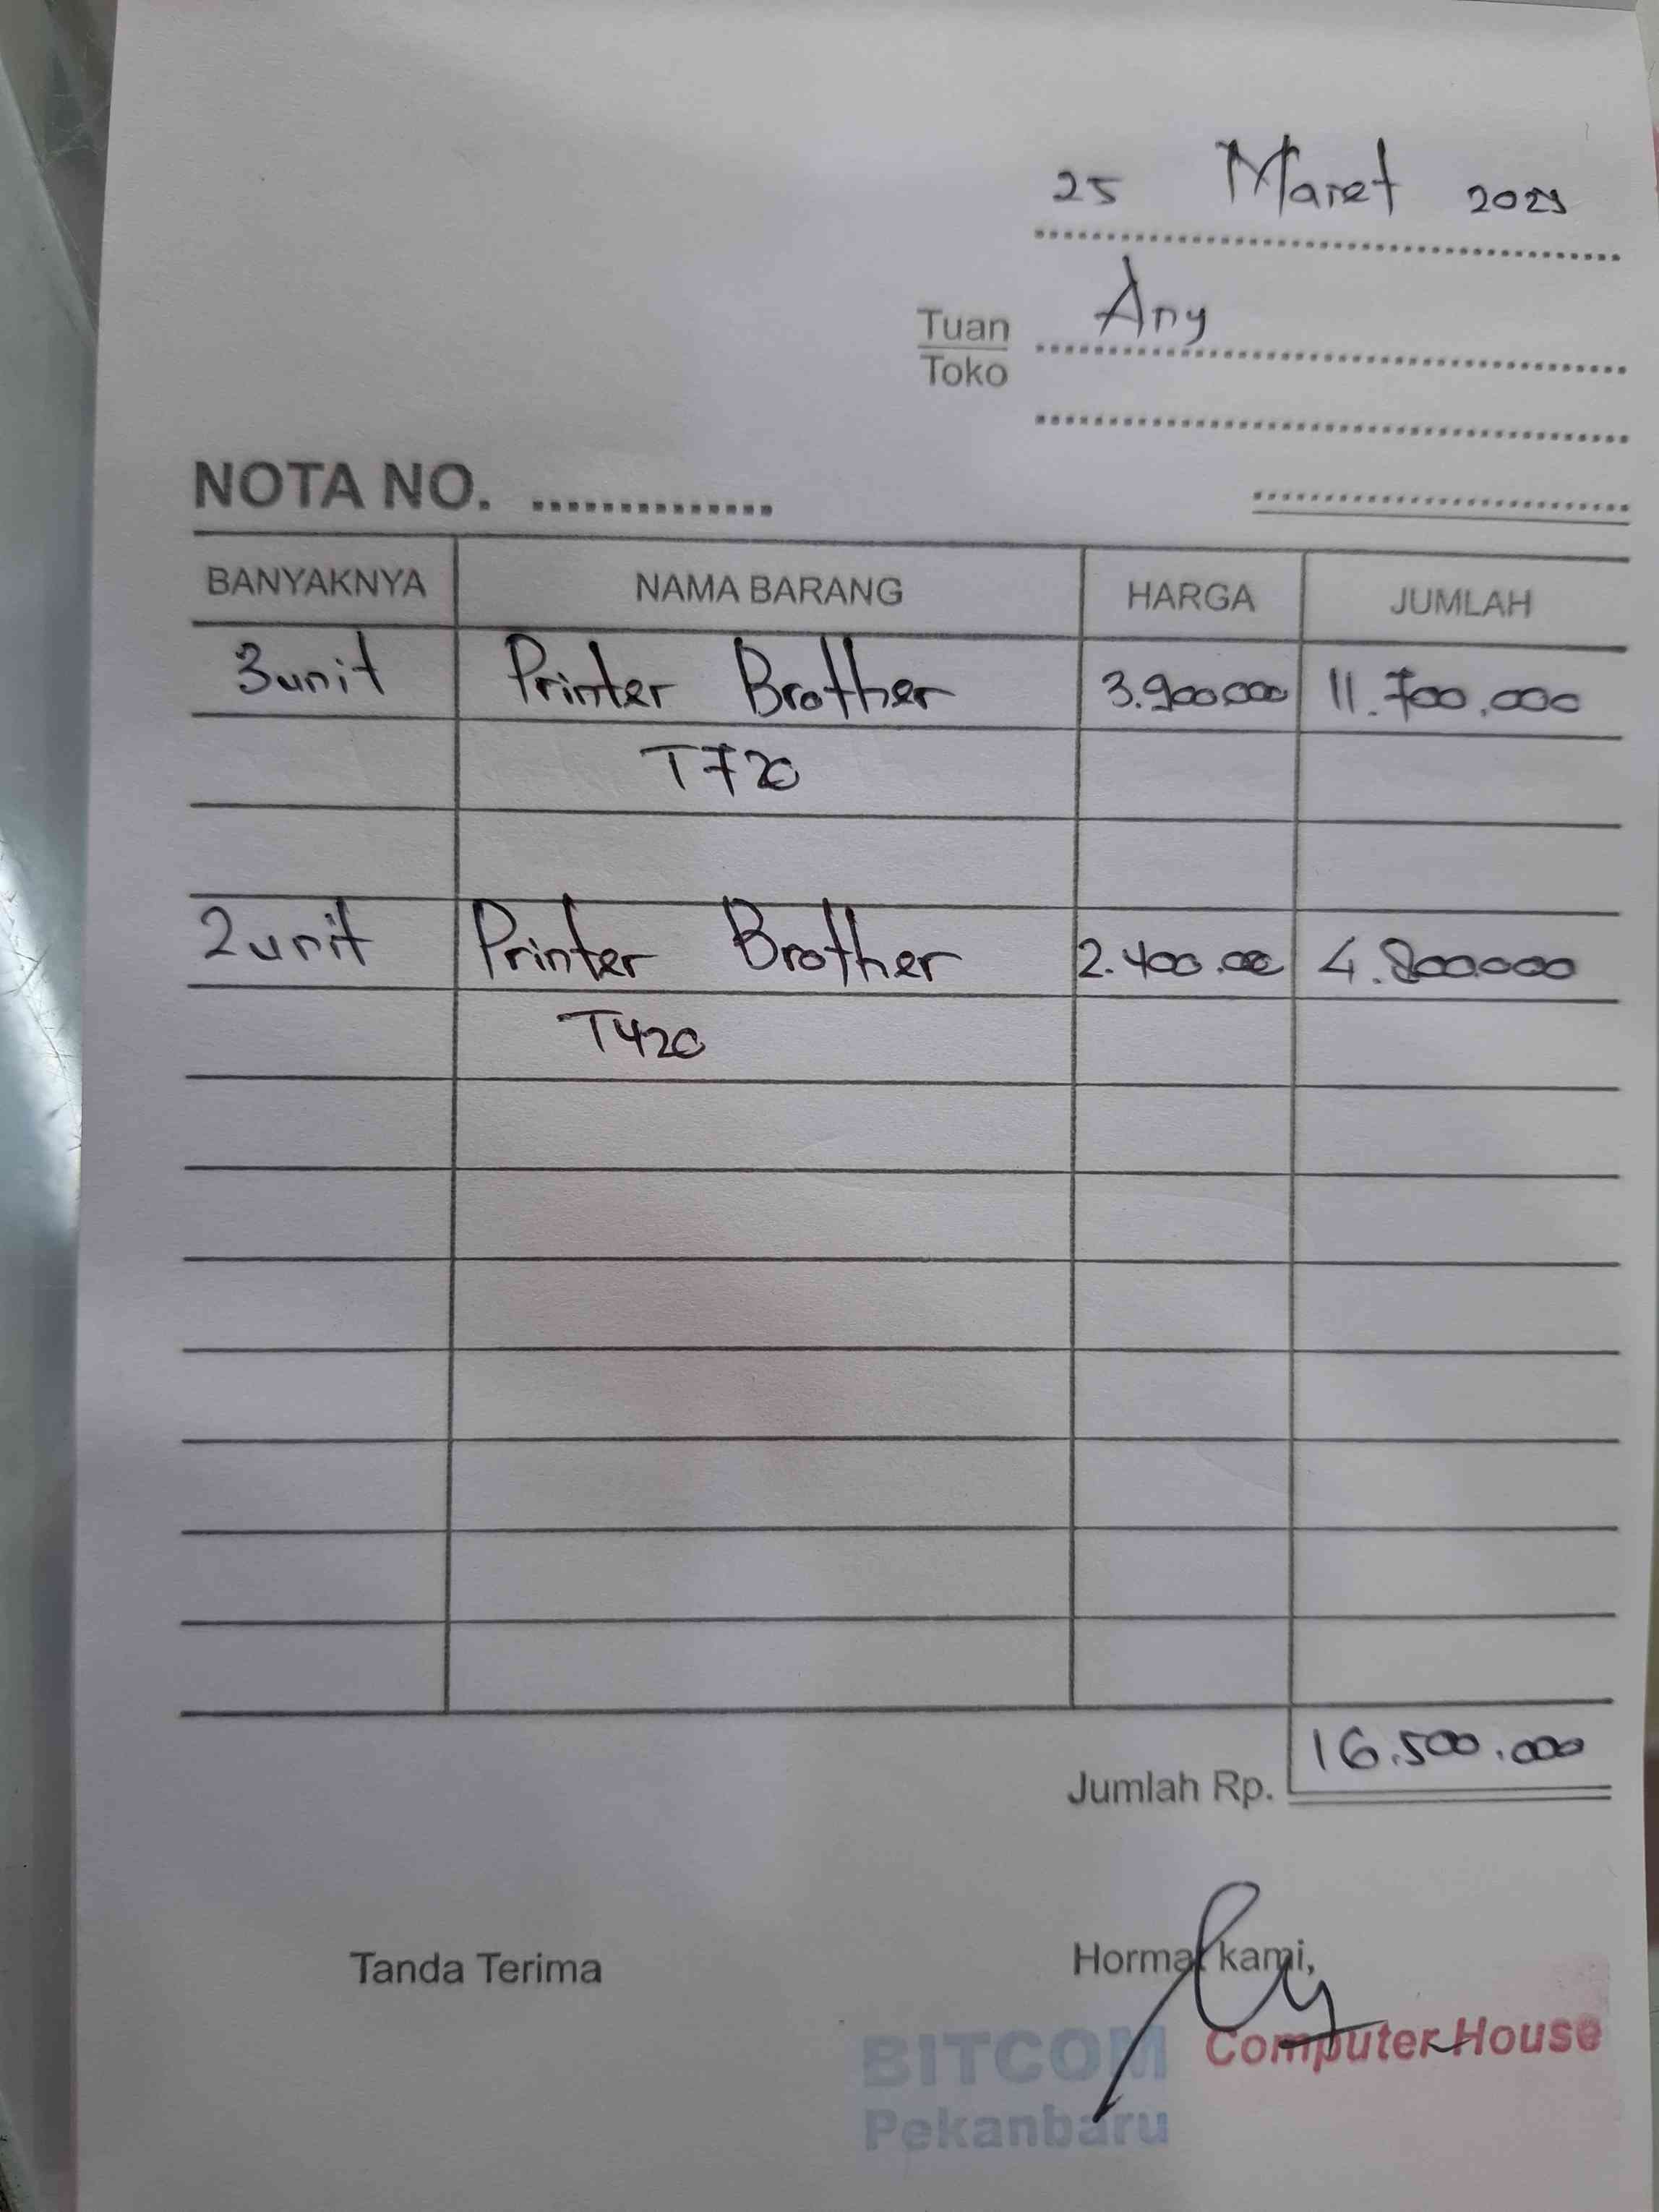 25 Maret 2025
Tuan Any
Toko
NOTA NO. ..............
BANYAKNYA NAMA BARANG HARGA JUMLAH
3 unit Printer Brother 3.900.000 11.700.000
T720
2 unit Printer Brother 2.400.00 4.800.000
T420
Jumlah Rp. 16.500.000
Tanda Terima Hormat kami,
BITCOM Computer House
Pekanbaru